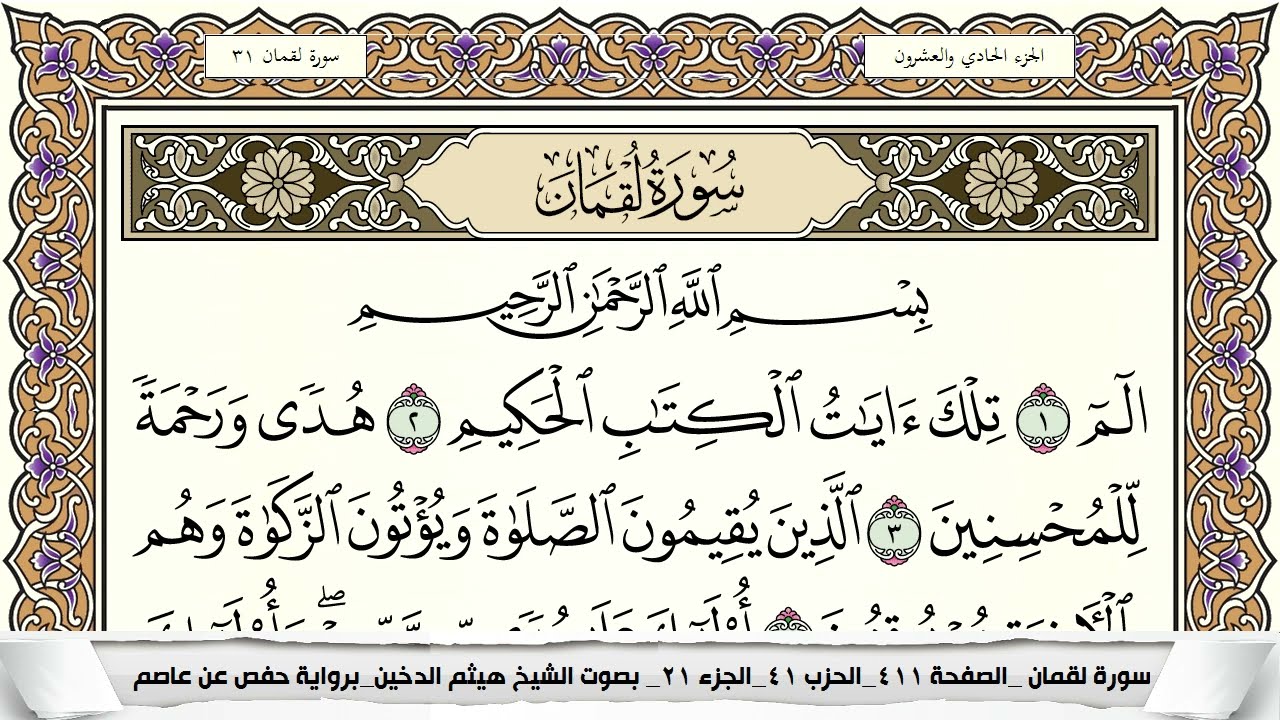 الجزء الحادي والعشرون
سورة لقمان ٣١
سُورَةُ لُقْمَان
بِسْمِ ٱللَّهِ ٱلرَّحْمَٰنِ ٱلرَّحِيمِ
الٓمٓ ١ تِلْكَ ءَايَٰتُ ٱلْكِتَٰبِ ٱلْحَكِيمِ ٢ هُدًى وَرَحْمَةً
لِّلْمُحْسِنِينَ ٣ ٱلَّذِينَ يُقِيمُونَ ٱلصَّلَوٰةَ وَيُؤْتُونَ ٱلزَّكَوٰةَ وَهُم
سورة لقمان _الصفحة ٤١١_الحزب ٤١_الجزء ٢١_ بصوت الشيخ هيثم الدخين_برواية حفص عن عاصم